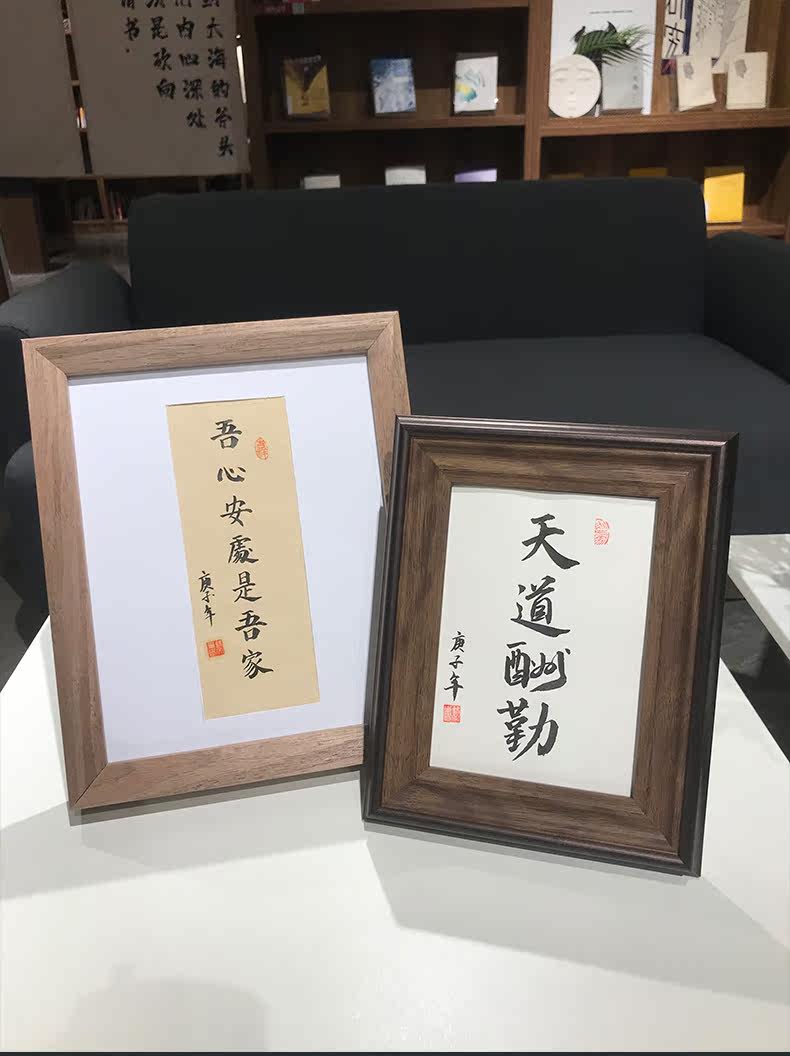 大海的斧头
们内心深处
须是砍向
书
吾心安處是吾家
庚子年
天道酬勤
庚子年